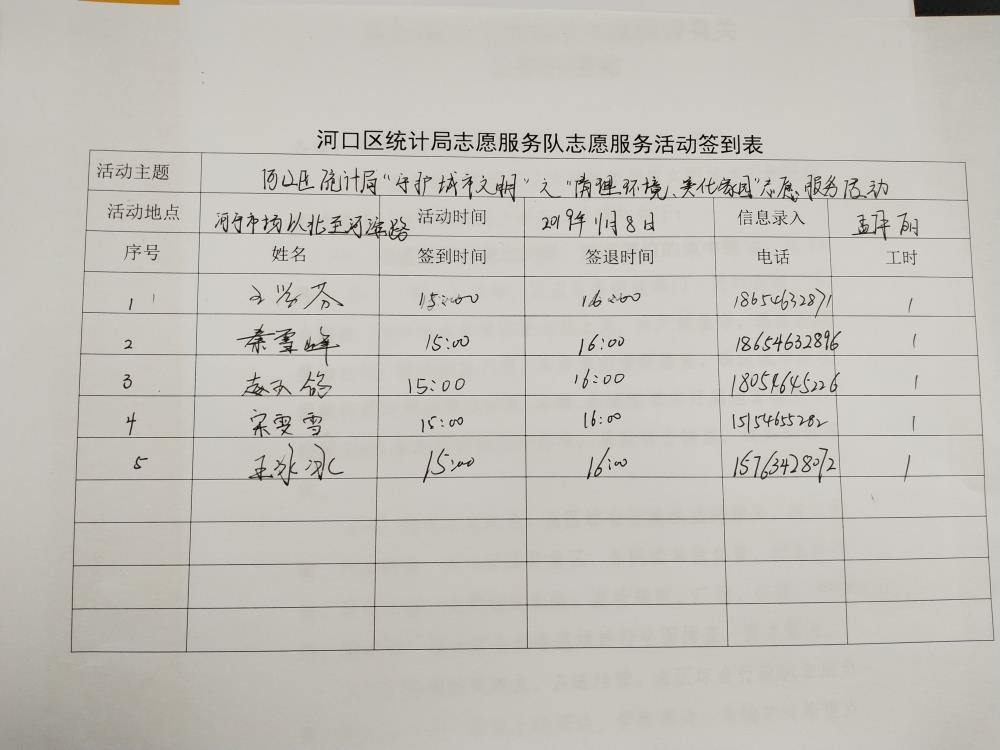 河口区统计局志愿服务队志愿服务活动签到表
活动主题 河口区统计局“守护城市文明”之“清理环境、美化家园”志愿服务活动
活动地点 河宁市场以北至河海路 活动时间 2019年11月8日 信息录入 孟庆丽
序号 姓名 签到时间 签退时间 电话 工时
1 王学芬 15:00 16:00 18654632871 1
2 秦雪峰 15:00 16:00 18654632896 1
3 15:00 16:00 18054645226 1
4 宋雯雪 15:00 16:00 15154655282 1
5 王冰冰 15:00 16:00 15763428072 1